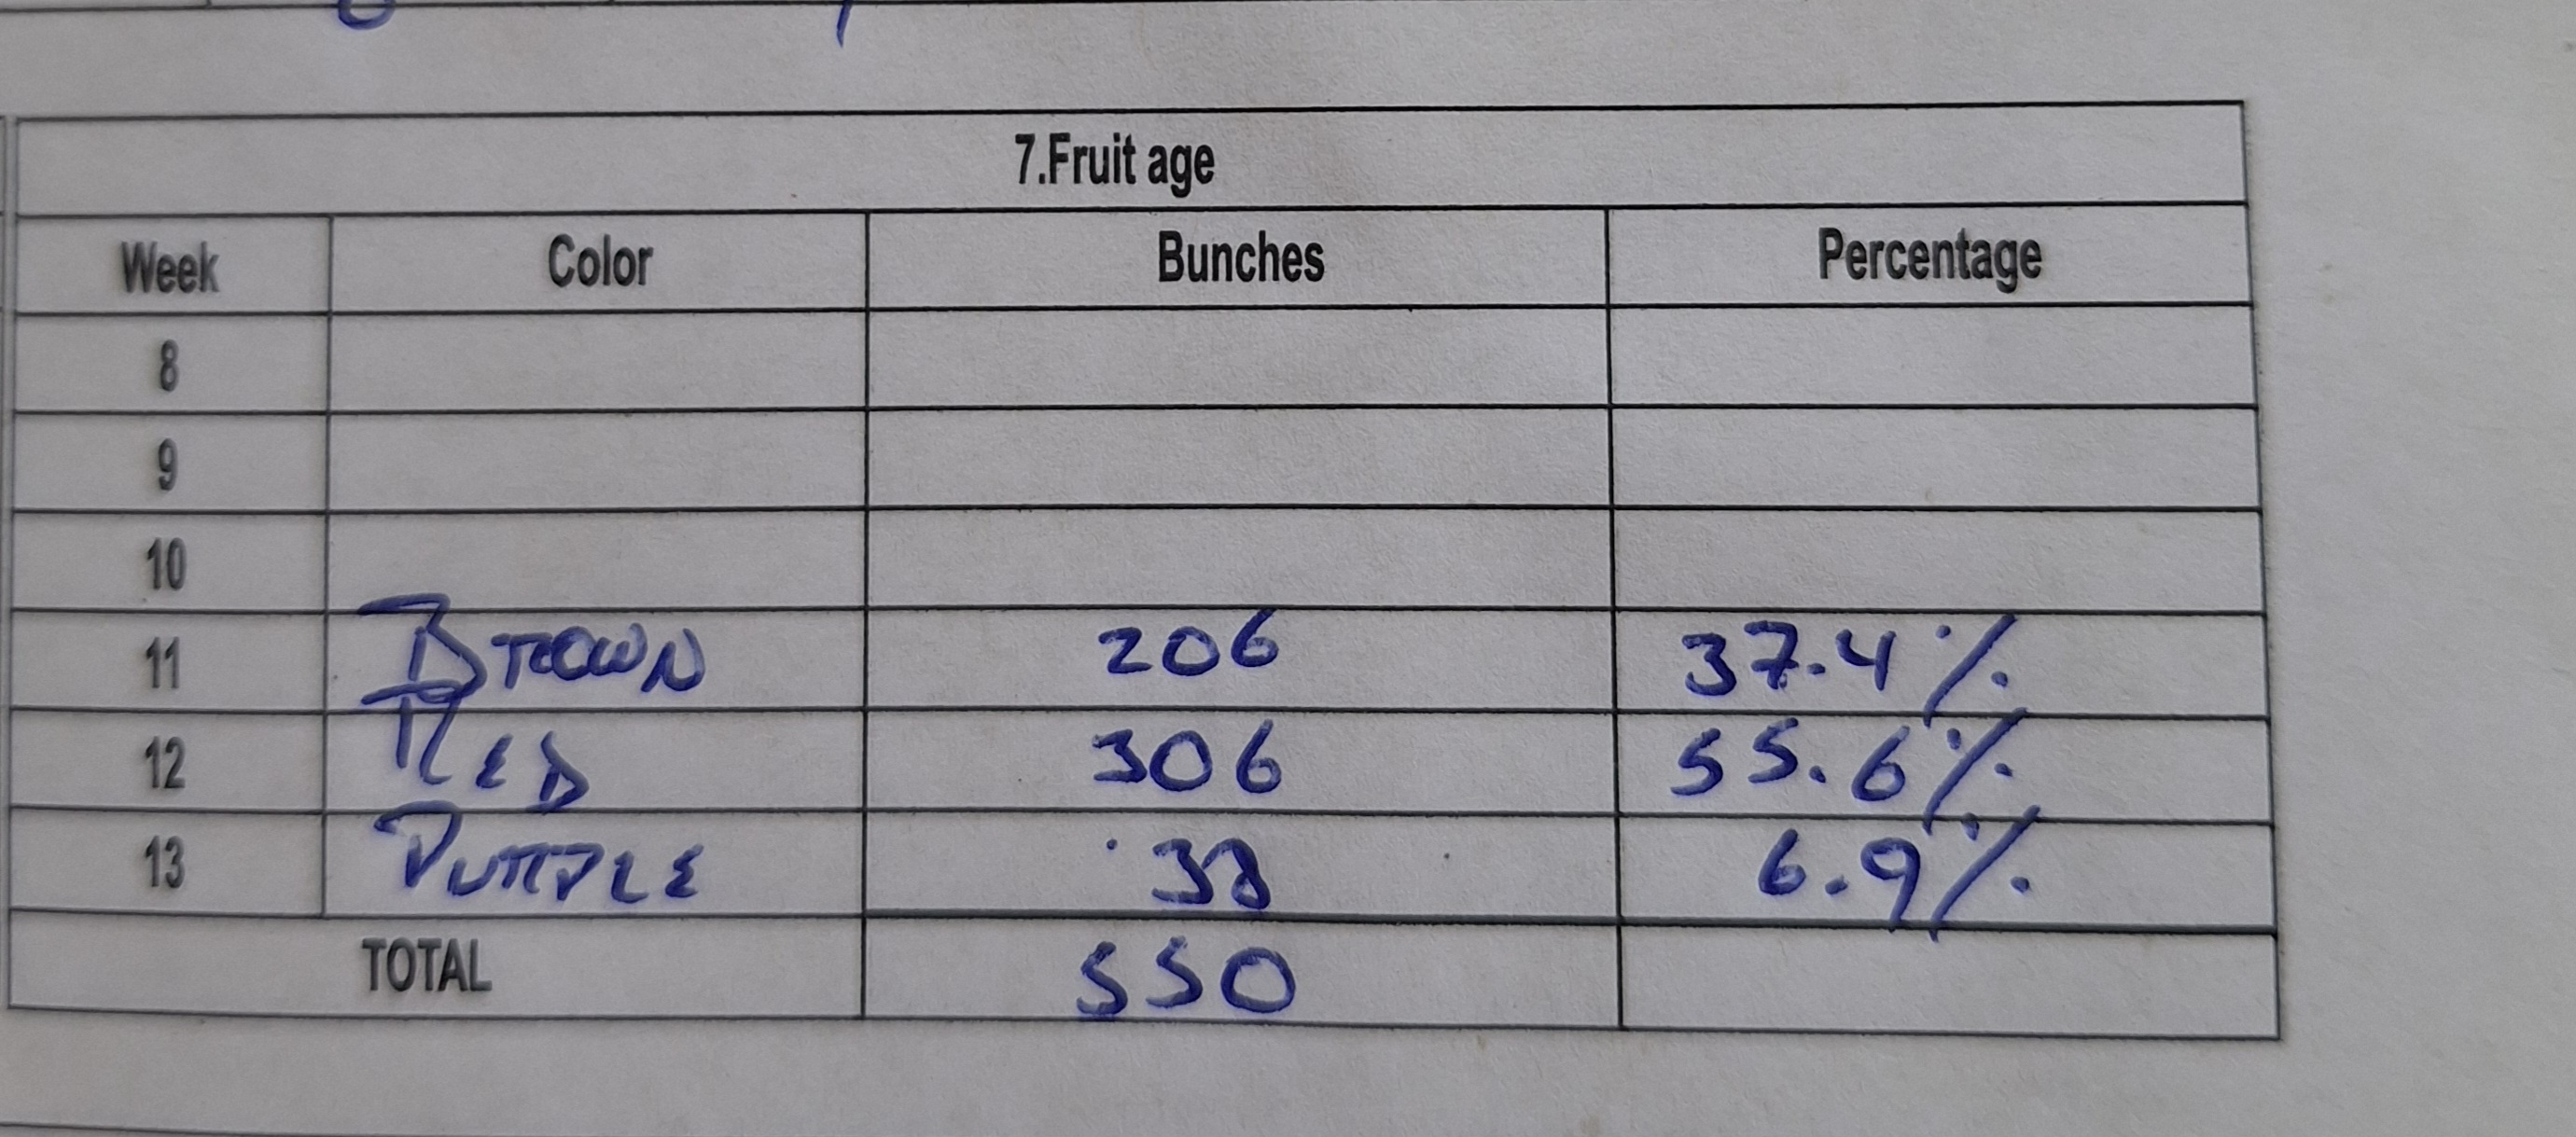 7.Fruit age
Week Color Bunches Percentage
8
9
10
11 BROWN 206 37.4%
12 RED 306 55.6%
13 PURPLE 38 6.9%
TOTAL 550